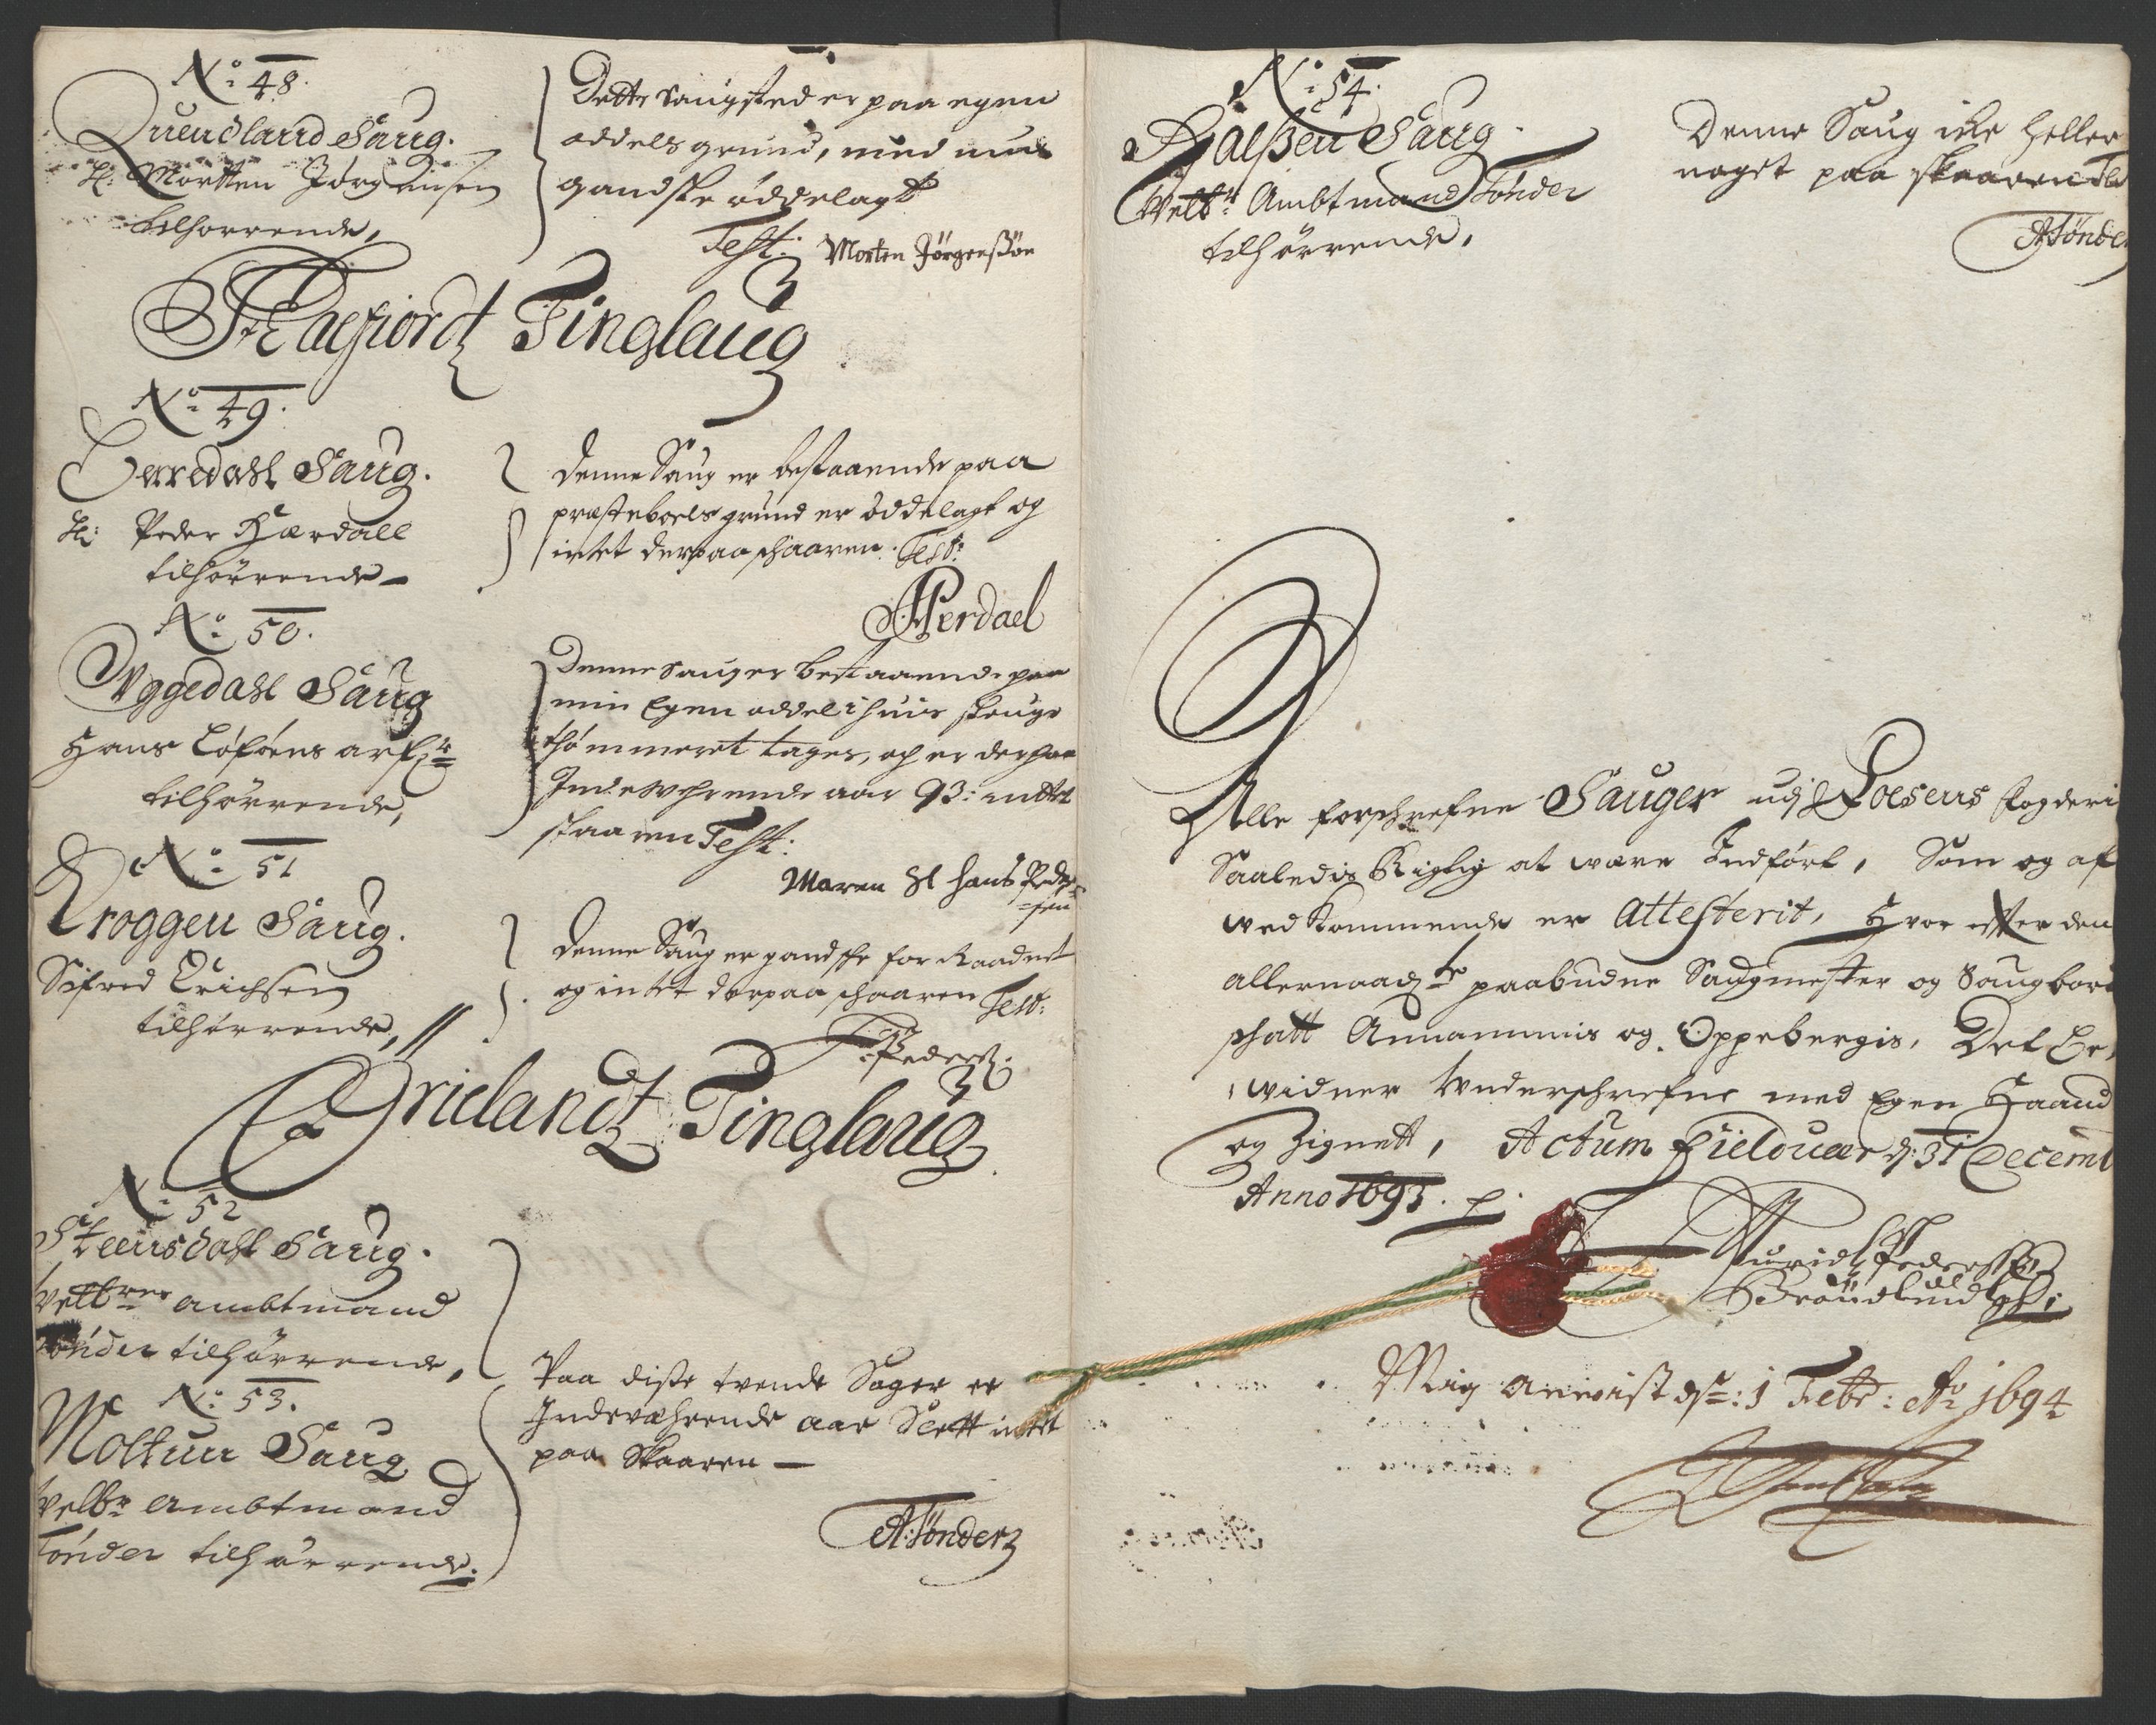 No: 48.
Quendland Saug.
Sl: Mortten Jørgensen
tilhørrende,
Dette Saugsted er paa egen
oddels grund, med mus
gandske øddelagt
Test: Morten Jørgenssøn
Tinglaug
No: 49.
Saug.
Sl: Peder Hærdall
tilhørrende
Denne Saug er bestaaende paa
præsteboels grund er øddelagt og
intet derpaa schaaren. Test:
Herdael
No: 50.
Vggedahl Saug
Hans arf:
tilhørrende,
Denne Saug er bestaaende paa
min Egen oddel i huis skouge
thømmeret tages, og er derpaa
Indewehrende aar 93: inttet
skaaren Test:
Maren Sl Hans Peder=
=sen
No: 51
Kroggen Saug.
Sifred Erichsen
tilhørrende,
Denne Saug er gandske for Raadnet
og intet derpaa schaaren Test:
Peders:
Tinglaug
No: 52
Steensdahl Saug.
Velbrne Ambtmand
Tønder tilhørrende,
No: 53.
Moltun Saug
Velbr Ambtmand
Tønder tilhørrende.
Paa disse tvende Sager er
Indeværende aar Slett intet
paa Skaaren
A: Tønder
No: 54.
Saug
Velbr: Ambtmand Tønder
tilhørrende,
Denne Saug iche heller
noget paa skaaren
A Tønder
Alle forschrefne Sauger udj Fogderi
Saaledis Rigtig at være Indført, Som og af
vedkommende er Attesterit, Hvor effter den
allernaadigste paabudne Saugmester og Saugbord
schatt Annammis og Oppebergis, Det
vidner Vnderschrefne med Egen Haand
og Zignett, Actum d: 31 Decemb
Anno 1693.
Lauridz Pederssen
Brøndlund
Mig anvist ds: 1 Febr: Ao 1694